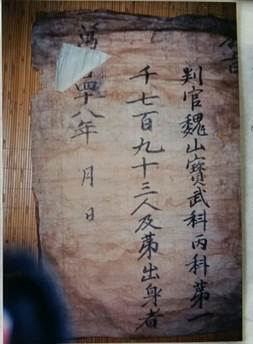 判官魏山寶武科丙科第一
千七百九十三人及第出身者
萬 四十八年 月 日